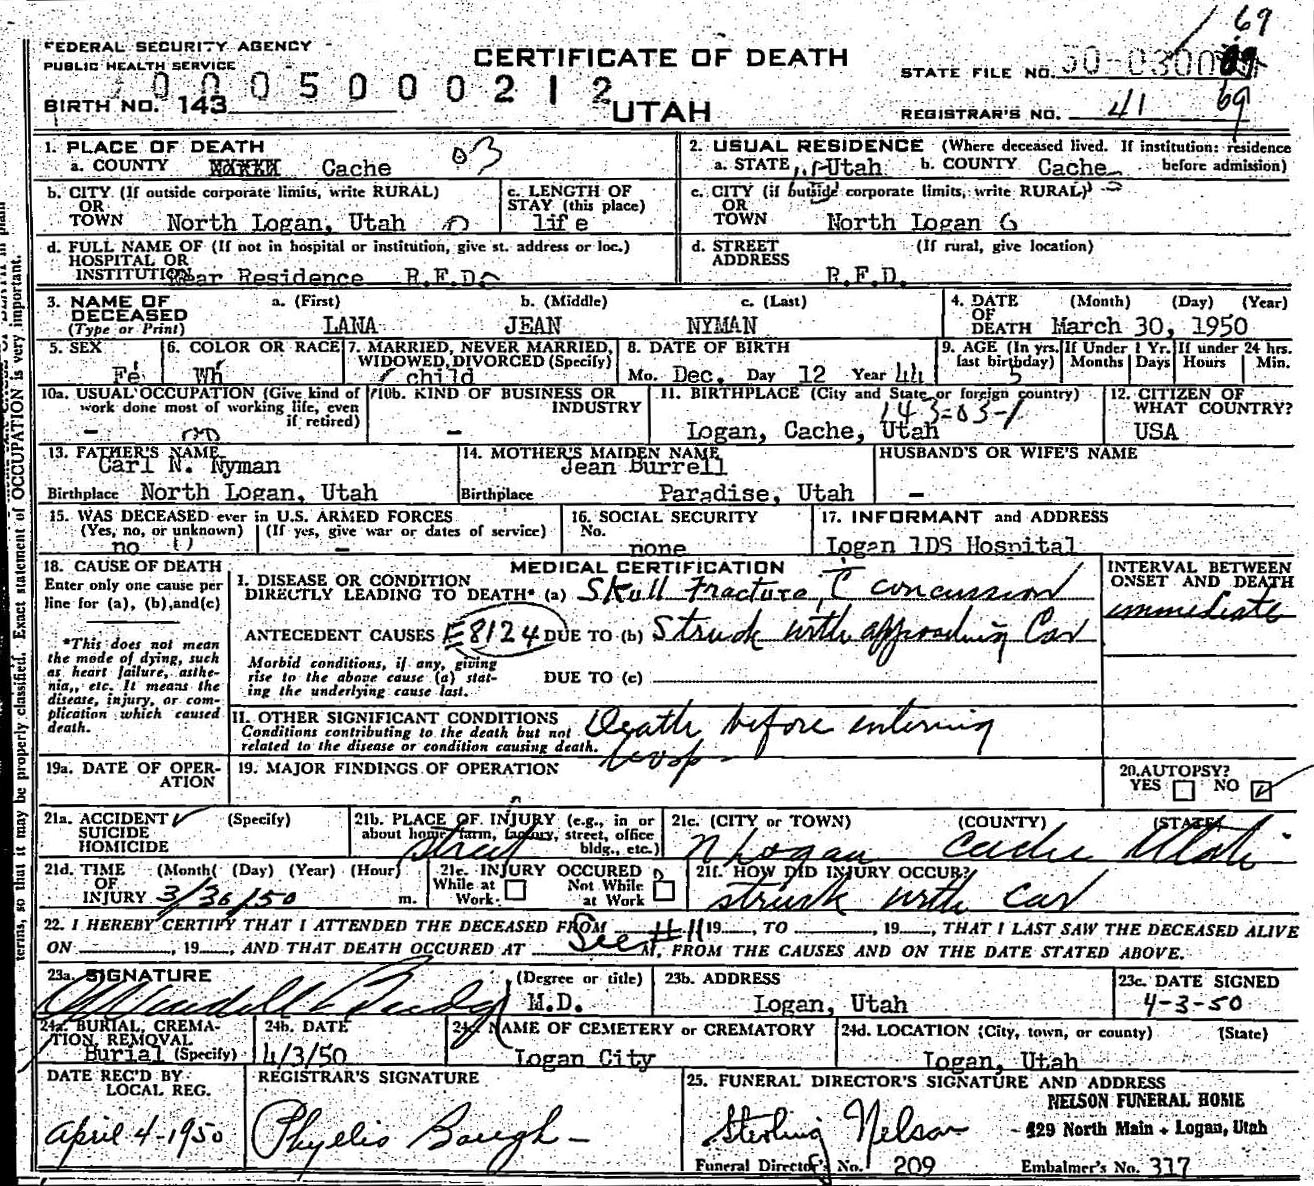 69
FEDERAL SECURITY AGENCY
PUBLIC HEALTH SERVICE
CERTIFICATE OF DEATH
STATE FILE NO.
0005000212
BIRTH NO. 143
UTAH
REGISTRAR'S NO. 41 69
1. PLACE OF DEATH
a. COUNTY Cache 03
2. USUAL RESIDENCE (Where deceased lived. If institution: residence before admission)
a. STATE Utah b. COUNTY Cache
b. CITY (If outside corporate limits, write RURAL)
OR
TOWN North Logan, Utah
c. LENGTH OF
STAY (this place)
life
c. CITY (if outside corporate limits, write RURAL)
OR
TOWN North Logan
d. FULL NAME OF (If not in hospital or institution, give st. address or loc.)
HOSPITAL OR
INSTITUTION Near Residence R.F.D.
d. STREET (If rural, give location)
ADDRESS R.F.D.
3. NAME OF DECEASED
(Type or Print)
a. (First) b. (Middle) c. (Last)
LANA JEAN NYMAN
4. DATE OF DEATH (Month) (Day) (Year)
March 30, 1950
5. SEX
Fe
6. COLOR OR RACE
Wh
7. MARRIED, NEVER MARRIED,
WIDOWED, DIVORCED (Specify)
child
8. DATE OF BIRTH
Mo. Dec. Day 12 Year 44
9. AGE (In yrs. last birthday)
5
If Under 1 Yr.
Months Days
If under 24 hrs.
Hours Min.
10a. USUAL OCCUPATION (Give kind of
work done most of working life, even
if retired)
-
10b. KIND OF BUSINESS OR
INDUSTRY
-
11. BIRTHPLACE (City and State or foreign country)
143-03-1
Logan, Cache, Utah
12. CITIZEN OF
WHAT COUNTRY?
USA
13. FATHER'S NAME
Carl N. Nyman
Birthplace North Logan, Utah
14. MOTHER'S MAIDEN NAME
Jean Burrell
Birthplace Paradise, Utah
HUSBAND'S OR WIFE'S NAME
-
15. WAS DECEASED ever in U.S. ARMED FORCES
(Yes, no, or unknown) (If yes, give war or dates of service)
no -
16. SOCIAL SECURITY
No.
none
17. INFORMANT and ADDRESS
Logan LDS Hospital
18. CAUSE OF DEATH
Enter only one cause per
line for (a), (b), and (c)
*This does not mean
the mode of dying, such
as heart failure, asthe-
nia, etc. It means the
disease, injury, or com-
plication which caused
death.
MEDICAL CERTIFICATION
I. DISEASE OR CONDITION
DIRECTLY LEADING TO DEATH* (a) Skull Fracture, c concussion
ANTECEDENT CAUSES E8124 DUE TO (b) Struck with approaching Car
Morbid conditions, if any, giving
rise to the above cause (a) stat-
ing the underlying cause last.
DUE TO (c)
II. OTHER SIGNIFICANT CONDITIONS
Conditions contributing to the death but not
related to the disease or condition causing death.
Death before entering
hosp
INTERVAL BETWEEN
ONSET AND DEATH
immediate
19a. DATE OF OPER-
ATION
19. MAJOR FINDINGS OF OPERATION
20. AUTOPSY?
YES NO
21a. ACCIDENT (Specify)
SUICIDE
HOMICIDE
21b. PLACE OF INJURY (e.g., in or
about home, farm, factory, street, office
bldg., etc.)
street
21c. (CITY or TOWN) (COUNTY) (STATE)
N Logan Cache Utah
21d. TIME (Month) (Day) (Year) (Hour)
OF
INJURY 3/30/50 m.
21e. INJURY OCCURED
While at Work Not While at Work
21f. HOW DID INJURY OCCUR?
struck with car
22. I HEREBY CERTIFY THAT I ATTENDED THE DECEASED FROM , 19 , TO , 19 , THAT I LAST SAW THE DECEASED ALIVE
See #11
ON , 19 , AND THAT DEATH OCCURED AT M, FROM THE CAUSES AND ON THE DATE STATED ABOVE.
23a. SIGNATURE (Degree or title)
M.D.
23b. ADDRESS
Logan, Utah
23c. DATE SIGNED
4-3-50
24a. BURIAL, CREMA-
TION, REMOVAL
Burial (Specify)
24b. DATE
4/3/50
24c. NAME OF CEMETERY or CREMATORY
Logan City
24d. LOCATION (City, town, or county) (State)
Logan, Utah
DATE REC'D BY
LOCAL REG.
April 4-1950
REGISTRAR'S SIGNATURE
Phyllis Baugh
25. FUNERAL DIRECTOR'S SIGNATURE AND ADDRESS
Sterling Nelson
NELSON FUNERAL HOME
429 North Main - Logan, Utah
Funeral Director's No. 209 Embalmer's No. 317
terms, so that it may be properly classified. Exact statement of OCCUPATION is very important.